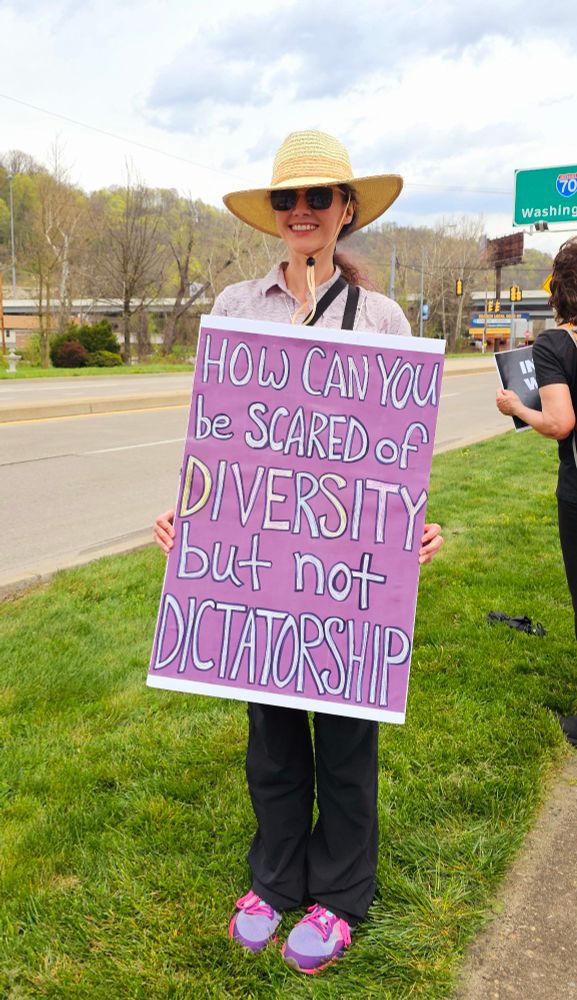 HOW CAN YOU
be SCARED of
DIVERSITY
but not
DICTATORSHIP
70
Washing
IN
W